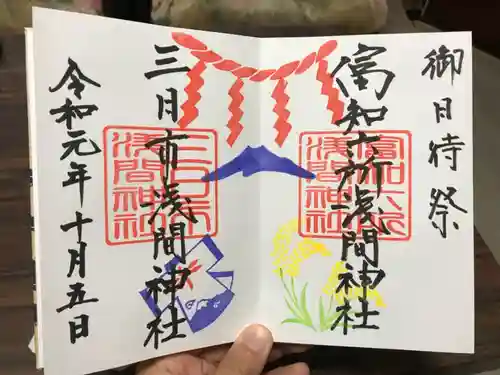 御日待祭
富知六所浅間神社
三日市浅間神社
令和元年十月五日